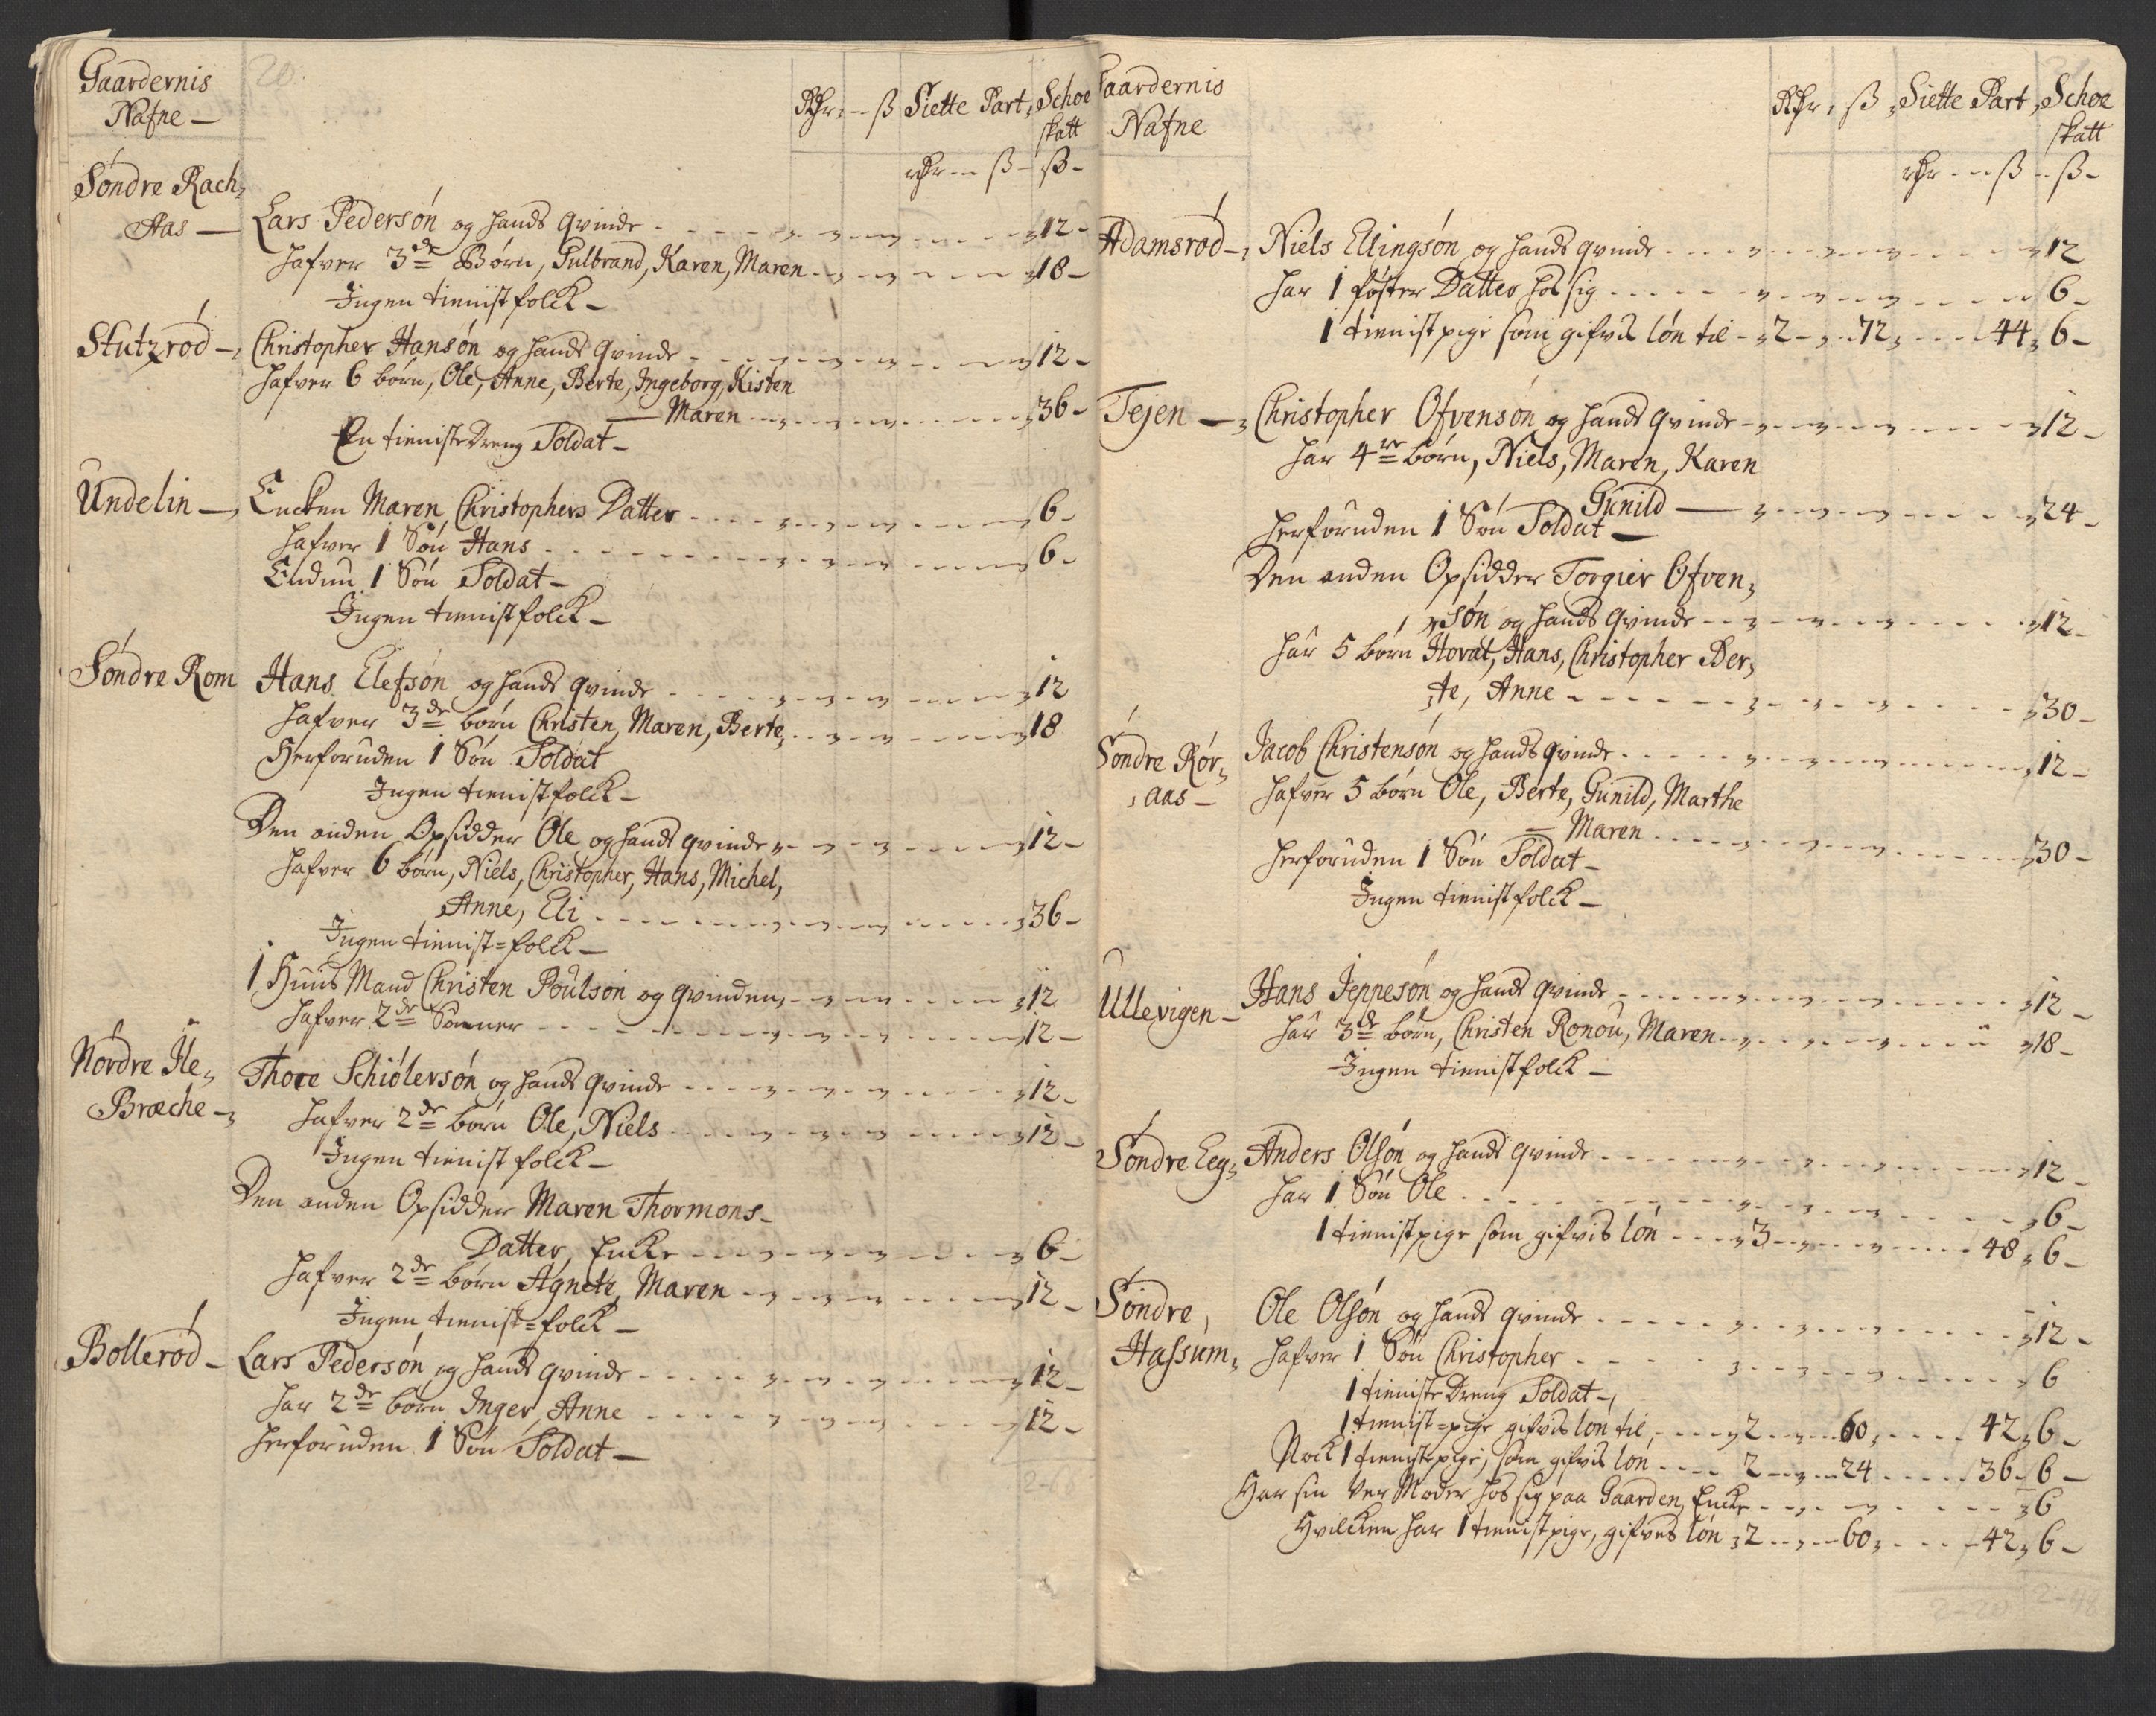 Gaardernis
Nafne —
20
Rdr: -- ß Siette Part, Schoe
skatt
rdr -- ß - ß -
Søndre Rach,
Aas — Lars Pedersøn og hands qvinde 12 -
hafver 3de Børn, Gulbrand, Karen, Maren 18 -
Ingen tieniistfolck -
Stutzrød - Christopher Hansøn og hands qvinde 12 -
hafver 6 børn, Ole, Anne, Berte, Ingeborg, Kisten
— Maren 36 -
En tieniste Dreng Soldat -
Undelin - Encken Maren Christophers Datter 6 -
hafver 1 Søn Hans 6 -
Endnu 1 Søn Soldat -
Ingen tienistfolck -
Søndre Rom Hans Elefsøn og hands qvinde 12
hafver 3de børn Christen, Maren, Berte 18
Herforuden 1 Søn Soldat
Ingen tienistfolck -
Den anden Opsidder Ole og hands qvinde 12 -
hafver 6 børn, Niels, Christopher, Hans, Michel,
Anne, Eli 36 -
Ingen tienist=folck -
1 Huus Mand Christen Poulsøn og qvinden 12
hafver 2de Sønner 12 -
Nordre Ile,
Bræche - Thore Schiølersøn og hands qvinde 12 -
hafver 2de børn Ole, Niels 12 -
Ingen tienist folck -
Den anden Opsidder Maren Thormons-
Datter, Encke 6 -
hafver 2de børn Agnete, Maren 12 -
Ingen tienist=folck -
Bollerød - Lars Pedersøn og hands qvinde 12 -
har 2de børn Inger, Anne 12 -
herforuden 1 Søn Soldat -
Gaardernis
Nafne
Rdr, ß, Siette Part, Schoe
skatt
rdr -- ß -- ß -
Adamsrød - Niels Ellingsøn og hands qvinde 12
har 1 foster Datter hos sig 6 -
1 tienistpige som gifvis løn til 2 - 72 44 6 -
Tejen - Christopher Ofvensøn og hands qvinde 12 -
har 4re børn, Niels, Maren, Karen
Gunild 24 -
herforuden 1 Søn Soldat -
Den anden Opsidder Torgier Ofven,
søn og hands qvinde 12 -
har 5 børn Hovat, Hans, Christopher Ber,
te, Anne 30 -
Søndre Rør,
aas - Jacob Christensøn og hands qvinde 12 -
hafver 5 børn Ole, Berte, Gunild, Marthe
— Maren 30 -
herforuden 1 Søn Soldat -
Ingen tienistfolck -
Ullevigen - Hans Jeppesøn og hands qvinde 12 -
har 3de børn, Christen Ronou, Maren 18 -
Ingen tienistfolck -
Søndre Eeg, Anders Olsøn og hands qvinde 12 -
har 1 Søn Ole 6 -
1 tienistpige som gifvis løn 3 48 6 -
Søndre,
Hassum, Ole Olsøn og hands qvinde 12 -
hafver 1 Søn Christopher 6
1 tieniste Dreng Soldat -
1 tienist=pige gifvis løn til 2 60 42 6 -
Nock 1 tienistepige, som gifvis løn 2 24 36 6 -
Har sin Ver Moder hos sig paa Gaarden, Encke 6
Hvilcken har 1 tienistpige, gifves løn 2 60 42 6 -
2-20 2-48